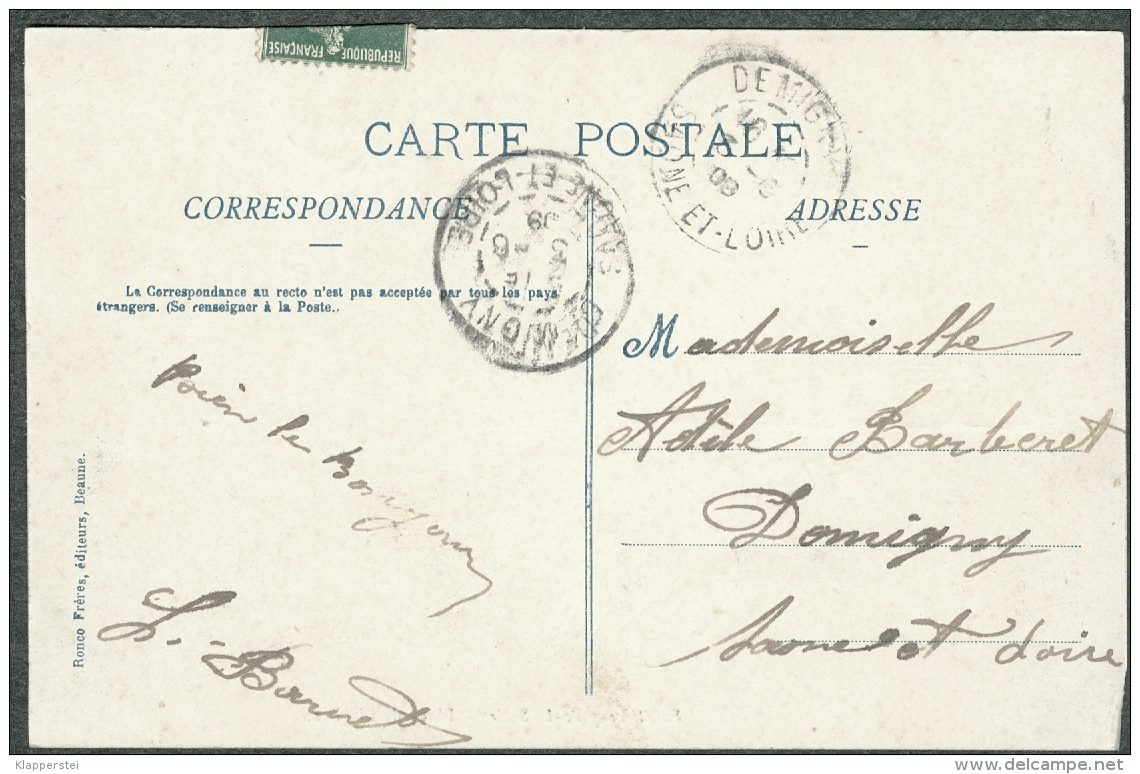 REPUBLIQUE FRANÇAISE
CARTE POSTALE
CORRESPONDANCE
ADRESSE
La Correspondance au recto n'est pas acceptée par tous les pays
étrangers. (Se renseigner à la Poste.,
DEMIGNY
SAONE-ET-LOIRE
09
DEMIGNY
SAONE-ET-LOIRE
09
Bien le Bonjour
L. Barnet
Mademoiselle
Adèle Barberet
Domigny
Saone et Loire
Ronco Frères, éditeurs, Beaune.
Klapperstei
www.delcampe.net